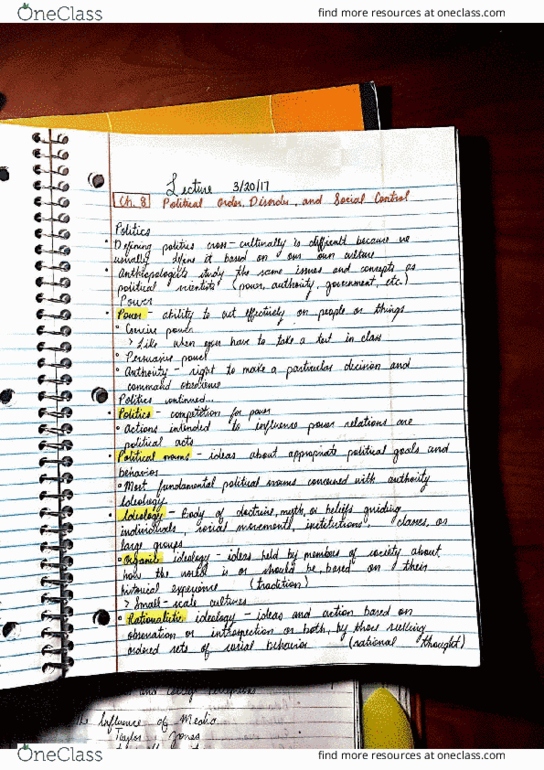 OneClass
find more resources at oneclass.com
Lecture 3/20/17
Ch. 8 Political Order, Disorder, and Social Control
Politics
• Defining politics cross-culturally is difficult because we
usually define it based on our own culture
• Anthropologists study the same issues and concepts as
political scientists (power, authority, government, etc.)
Power
• Power - ability to act effectively on people or things
• Coercive power
> Like when you have to take a test in class
• Persuasive power
• Authority - right to make a particular decision and
command obedience
Politics continued...
• Politics - competition for power
• Actions intended to influence power relations are
political acts
• Political norms - ideas about appropriate political goals and
behavior
• Most fundamental political norms concerned with authority
Ideology
• Ideology - Body of doctrine, myth, or beliefs guiding
individuals, social movements, institutions, classes, or
large groups
• Organic ideology - ideas held by members of society about
how the world is or should be, based on their
historical experience (tradition)
> Small-scale cultures
• Rationalistic ideology - ideas and action based on
observation or introspection or both, by those
ordered sets of social behavior (rational thought)
and
the Influence of Media
Taylor Jones
OneClass
find more resources at oneclass.com